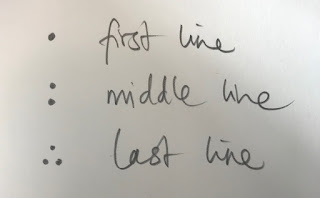 • first line
: middle line
∴ last line